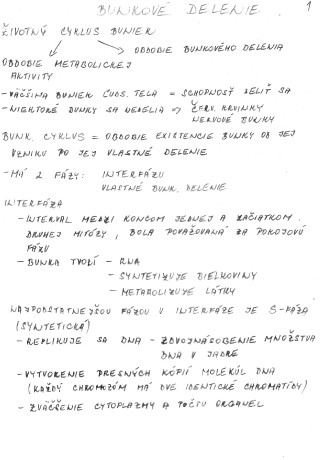 BUNKOVÉ DELENIE. 1
ŽIVOTNÝ CYKLUS BUNIEK
OBDOBIE BUNKOVÉHO DELENIA
OBDOBIE METABOLICKEJ
AKTIVITY
- VÄČŠINA BUNIEK ĽUDS. TELA = SCHOPNOSŤ DELIŤ SA
- NIEKTORÉ BUNKY SA NEDELIA => ČERV. KRVINKY
NERVOVÉ BUNKY
BUNK. CYKLUS = OBDOBIE EXISTENCIE BUNKY OD JEJ
VZNIKU PO JEJ VLASTNÉ DELENIE
- MÁ 2 FÁZY: INTERFÁZU
VLASTNÉ BUNK. DELENIE
INTERFÁZA
- INTERVAL MEDZI KONCOM JEDNEJ A ZAČIATKOM
DRUHEJ MITÓZY, BOLA POVAŽOVANÁ ZA POKOJOVÚ
FÁZU
- BUNKA TVORÍ - RNA
- SYNTETIZUJE BIELKOVINY
- METABOLIZUJE LÁTKY
NAJPODSTATNEJŠOU FÁZOU V INTERFÁZE JE S-FÁZA
(SYNTETICKÁ)
- REPLIKUJE SA DNA - ZDVOJNÁSOBENIE MNOŽSTVA
DNA V JADRE
- VYTVORENIE PRESNÝCH KÓPIÍ MOLEKÚL DNA
(KAŽDÝ CHROMOZÓM MÁ DVE IDENTICKÉ CHROMATÍDY)
- ZVÄČŠENIE CYTOPLAZMY A POČTU ORGANEL